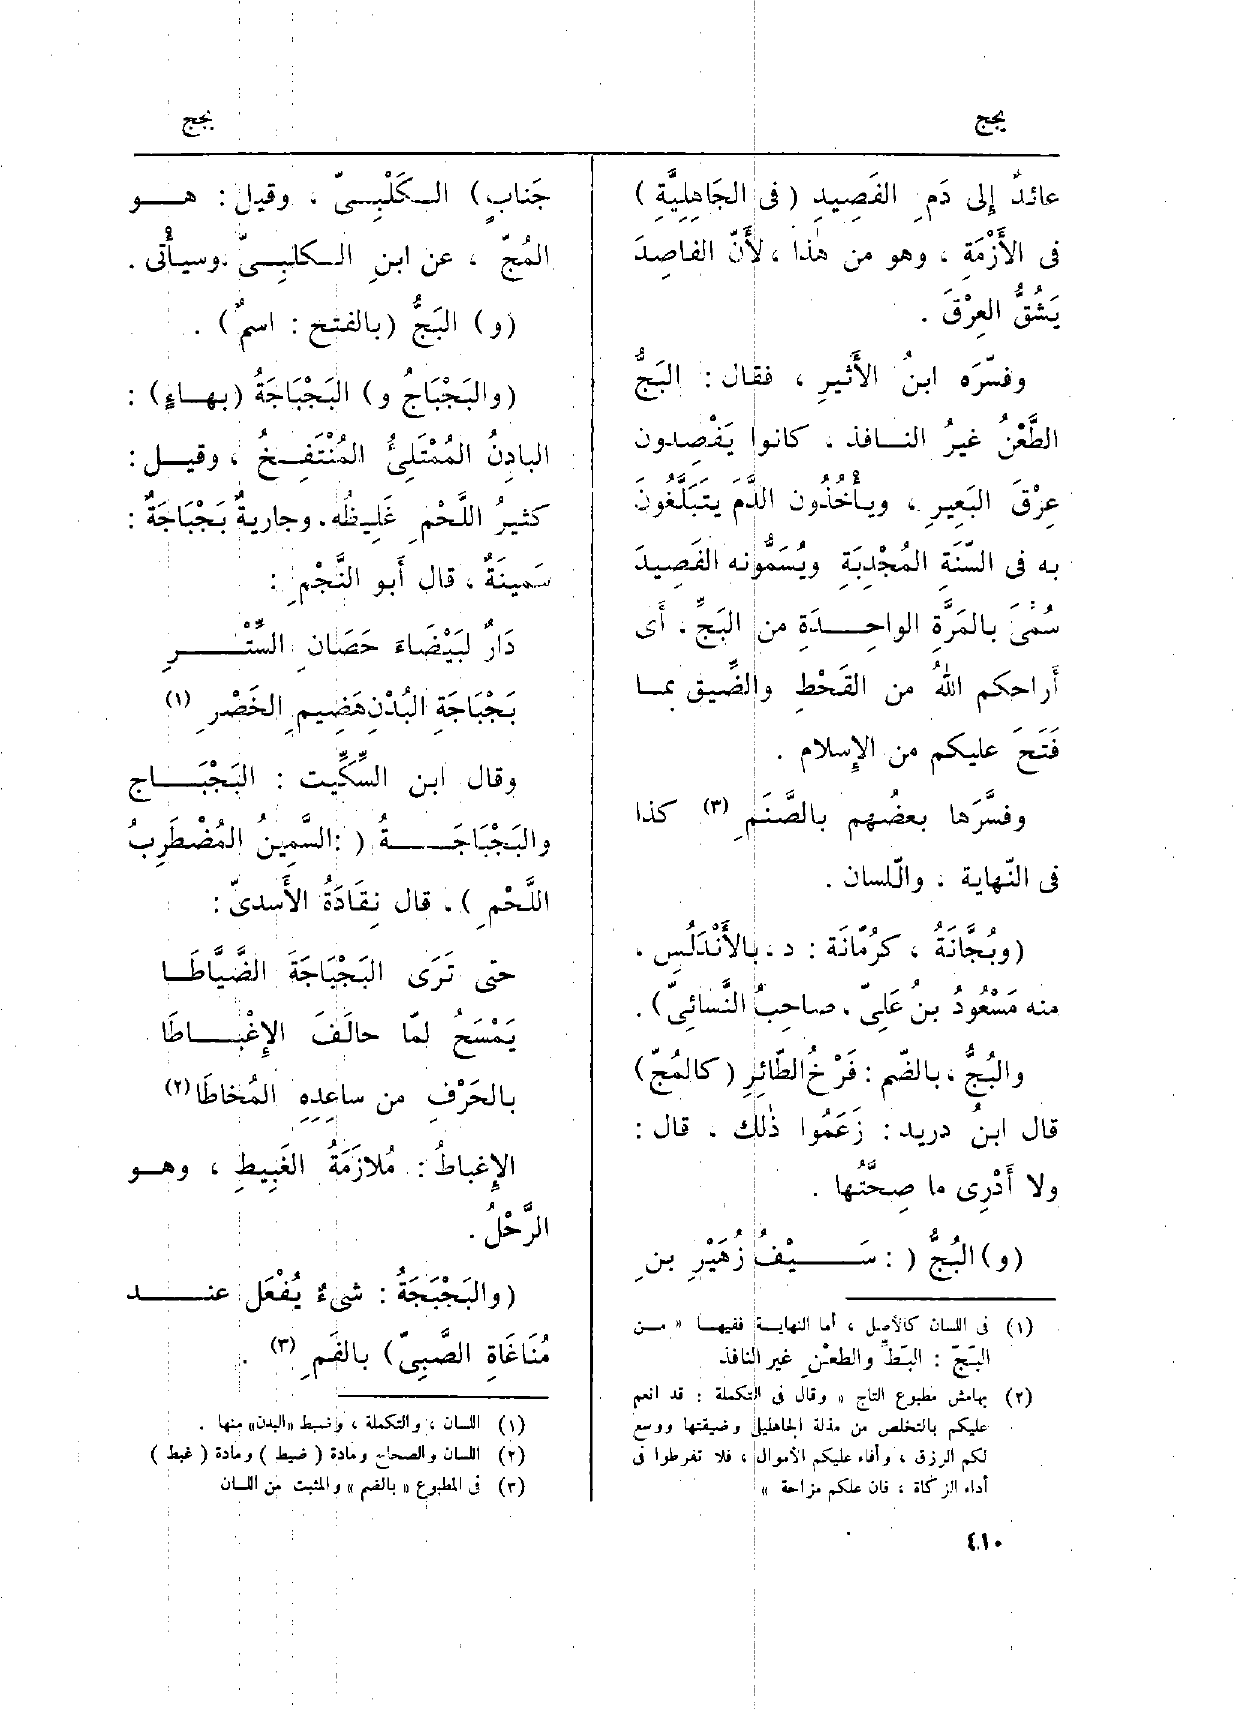 بجج
بجج
عائدٌ إلى دَمِ الفَصِيدِ (فى الجَاهِلِيَّةِ)
فى الأَزْمَةِ ، وهو من هٰذا ، لأَنّ الفاصِدَ
يَشُقُّ العِرْقَ .
وفسّرَه ابنُ الأَثيرِ ، فقال : البَجُّ
الطَّعْنُ غيرُ النافذ ، كانوا يَفْصِدون
عِرْقَ البَعِيرِ ، ويأْخُذُون الدَّمَ يتَبَلَّغُونَ
به فى السَّنَةِ المُجْدِبَةِ ويُسَمُّونه الفَصِيدَ
سُمِّىَ بالمَرَّةِ الواحِدَةِ من البَجِّ . أى
أَراحكم اللهُ من القَحْطِ والضِّيق بما
فَتَحَ عليكم من الإِسلام .
وفسَّرَها بعضُهم بالصَّنَمِ (٣) كذا
فى النّهاية ، واللّسان .
(وبُجَّانَةُ ، كرُمّانَة : د ، بالأَنْدَلُسِ ،
منه مَسْعُودُ بنُ عَلِىّ ، صاحبُ النَّسَائِىِّ) .
والبُجُّ ، بالضّم : فَرْخُ الطّائِرِ (كالمُجّ)
قال ابنُ دريد : زَعَمُوا ذٰلك . قال :
ولا أَدْرِى ما صِحَّتُها .
(و) البُجُّ ( : سَيْفُ زُهَيْرِ بنِ
(١) فى اللسان كالأصل ، أما النهاية ففيها « من
البَجّ : البَطّ والطعْنِ غير النافذ
(٢) بهامش مطبوع التاج « وقال فى التكملة : قد انعم
عليكم بالتخلص من مذلة الجاهلية وضيقتها ووسع
لكم الرزق ، وأفاء عليكم الأموال ، فلا تفرطوا فى
أداء الزكاة ، فان عللكم مزاحة »
جَنابٍ) الكَلْبِىّ ، وقيل : هو
المُجّ ، عن ابنِ الكلبِىّ ، وسيأْتى .
(و) البَجُّ (بالفتح : اسمٌ) .
(والبَجْبَاجُ و) البَجْبَاجَةُ (بهاءٍ) :
البادِنُ المُمْتَلِئُ المُنْتَفِخُ ، وقيل :
كثيرُ اللَّحْمِ غَلِيظُه . وجاريةٌ بَجْبَاجَةٌ :
سَمِينَةٌ ، قال أَبو النَّجْمِ :
دَارٌ لبَيْضَاءَ حَصَانِ السِّتْرِ
بَجْبَاجَةِ البُدْنِ هَضِيمِ الخَصْرِ (١)
وقال ابن السِّكِّيت : البَجْبَاج
والبَجْبَاجَةُ ( : السَّمِينُ المُضْطَرِبُ
اللَّحْمِ ) . قال نِقَادَةُ الأَسدىّ :
حتى تَرَى البَجْبَاجَةَ الضَّيَّاطَا
يَمْسَحُ لمّا حالَفَ الإِغْبَاطَا
بالحَرْفِ من ساعِدِهِ المُخاطَا (٢)
الإِغباطُ : مُلازَمَةُ الغَبِيطِ ، وهو
الرَّحْلُ .
(والبَجْبَجَةُ : شىءٌ يُفْعَل عند
مُنَاغَاةِ الصَّبِىّ) بالفَمِ (٣) .
(١) اللسان ، والتكملة ، وضبط «البدن» منها .
(٢) اللسان والصحاح ومادة ( ضيط ) ومادة ( غبط )
(٣) فى المطبوع « بالضم » والمثبت من اللسان
٤١٠